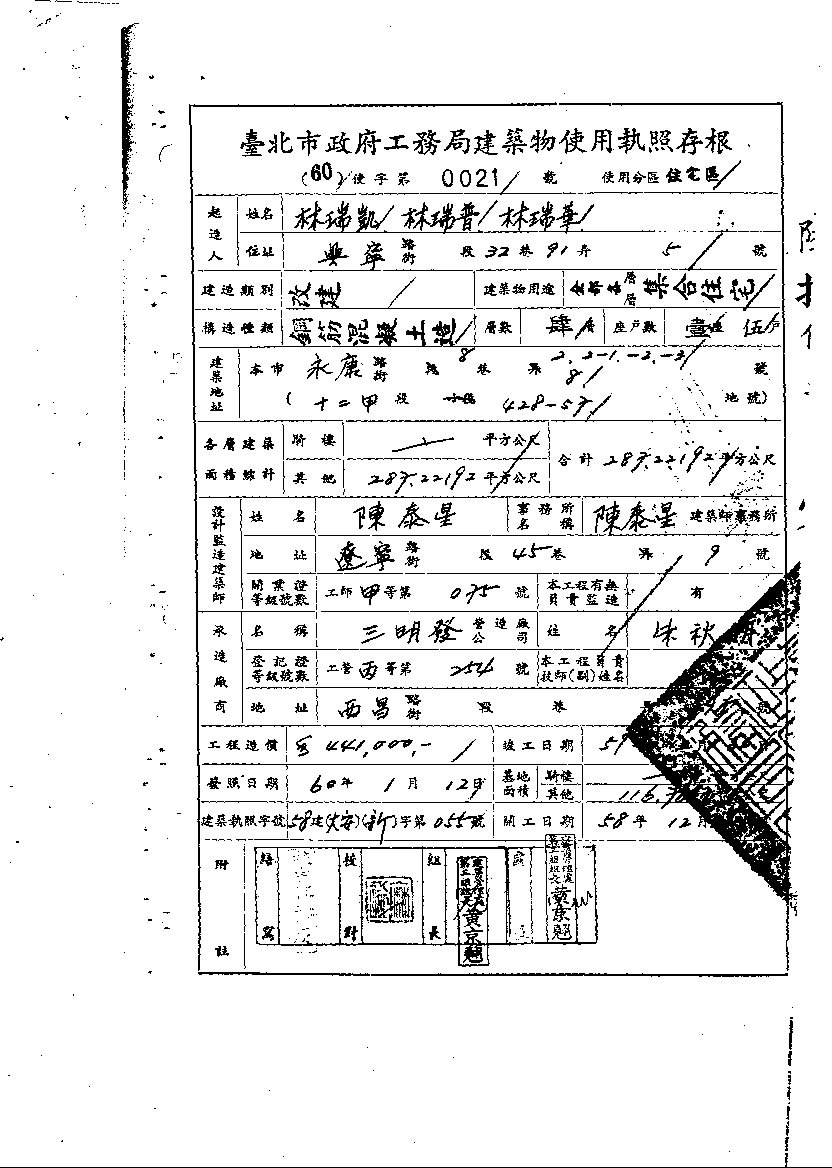 臺北市政府工務局建築物使用執照存根
(60)使字第 0021 號 使用分區 住宅區
起造人 姓名 林瑞凱 林瑞普 林瑞華
住址 興寧路街 段 32 巷 91 弄 5 號
建造類別 改建 建築物用途 全部各層層 集合住宅
構造種類 鋼筋混凝土造 層數 肆層 座戶數 壹座 伍戶
建築地址 本市 永康路街 8 巷 弄 2.2-1.-2.-3 號
8
( 十二甲 段 小段 428-57 地號)
各層建築面積總計 騎樓 平方公尺
其他 287.22192 平方公尺 合計 287.22192 平方公尺
設計監造建築師 姓名 陳泰星 事務所名稱 陳泰星 建築師事務所
地址 遼寧路街 段 45 巷 弄 9 號
開業證等級號數 工師 甲 等第 075 號 本工程有無負責監造 有
承造廠商 名稱 三明發 營造廠公司 姓名 朱秋
登記證等級號數 工營 丙 等第 254 號 本工程負責技師(副)姓名
地址 西昌路街 段 巷 號
工程造價 441,000,- 竣工日期 月
發照日期 60年 1月 12日 基地面積 騎樓
其他 116.
建築執照字號 58建(大安)(新)字第 055號 開工日期 58年 12月
附註 繕寫 校對 組長
黃京翹